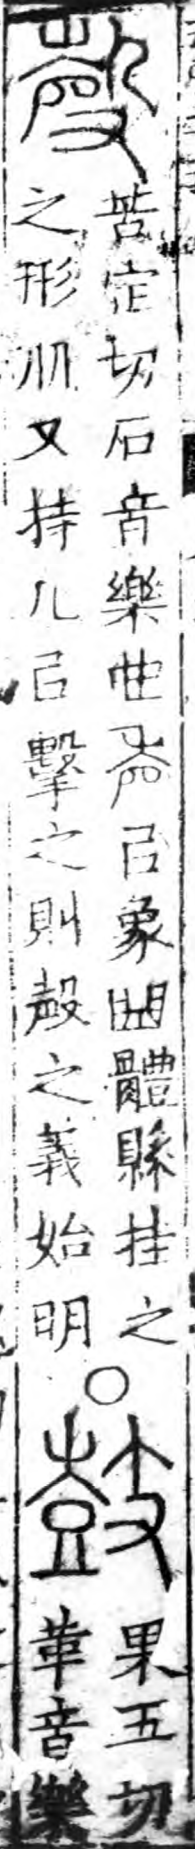 殸
苦定切石音樂也声㠯象其體縣挂之
之形从又持几㠯擊之則殸之義始明
○
鼓
果五切
革音樂